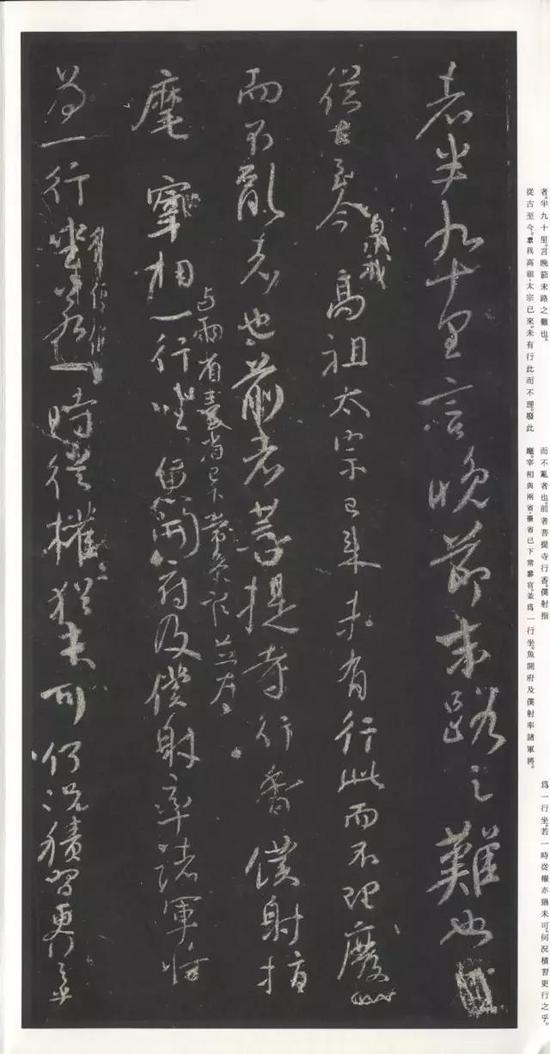 者。半九十里。言晚節末路之難也。
從古至今。臮我高祖太宗已來。未有行此而不理。廢此
而不亂者也。前者菩提寺行香。僕射指
麾。宰相與兩省。臺省已下常參官。並爲一行坐。魚開府及僕射率諸軍將。
爲一行坐。若一時從權。亦猶未可。何況積習更行之乎。
者半九十里言晚節末路之難也
從古至今臮我高祖太宗已來未有行此而不理廢此
而不亂者也前者菩提寺行香僕射指
麾宰相與兩省臺省已下常參官並爲一行坐魚開府及僕射率諸軍將
爲一行坐若一時從權亦猶未可何況積習更行之乎